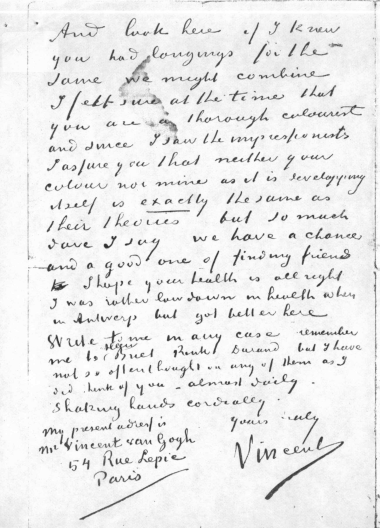 And look here if I knew
you had longings for the
same we might combine
I felt sure at the time that
you are a thorough colourist
and since I saw the impressionists
I assure you that neither your
colour nor mine as it is developping
itself is exactly the same as
their theories but so much
dare I say we have a chance
and a good one of finding friend
I hope your health is all right
I was rather low down in health when
in Antwerp but got better here
Write to me in any case remember
me to Briel Rink Durand but I have
not so often thought on any of them as I
did think of you - almost daily.
Shaking hands cordially.
yours truly
Vincent
My present adress is
Mr Vincent van Gogh
54 Rue Lepic
Paris